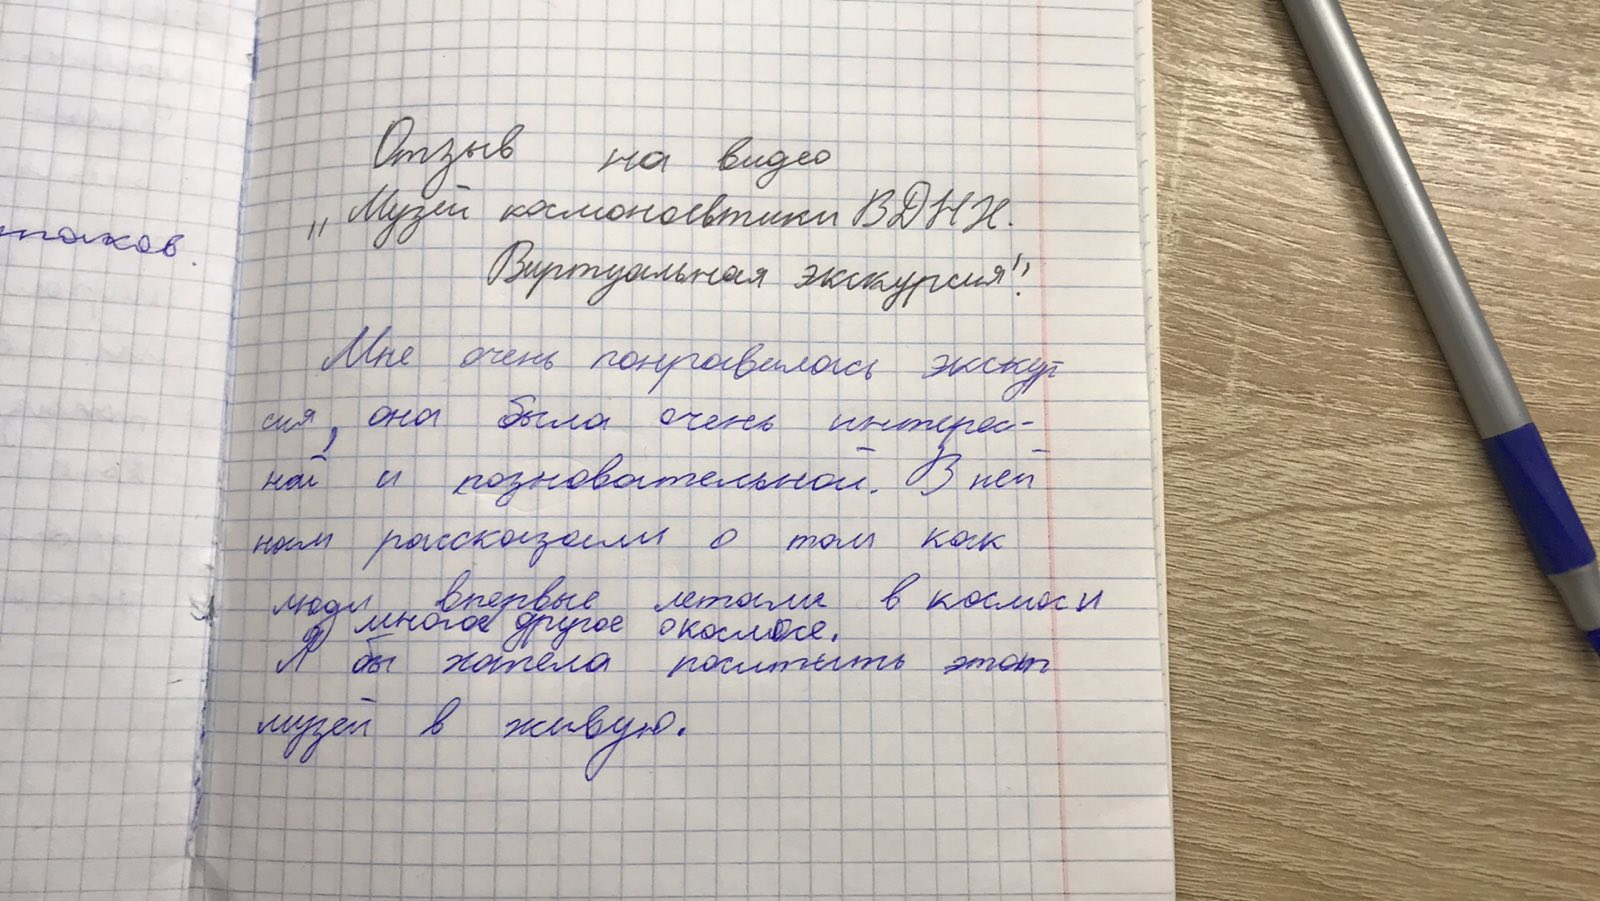 таков.
Отзыв на видео
„Музей космоновтики ВДНХ.
Виртуальная экскурсия".
Мне очень понравилась экскур
сия, она была очень интерес-
ной и позновательной. В ней
нам рассказали о том как
люди впервые летали в космос и
многое другое о космосе.
Я бы хотела посетить этот
музей в живую.